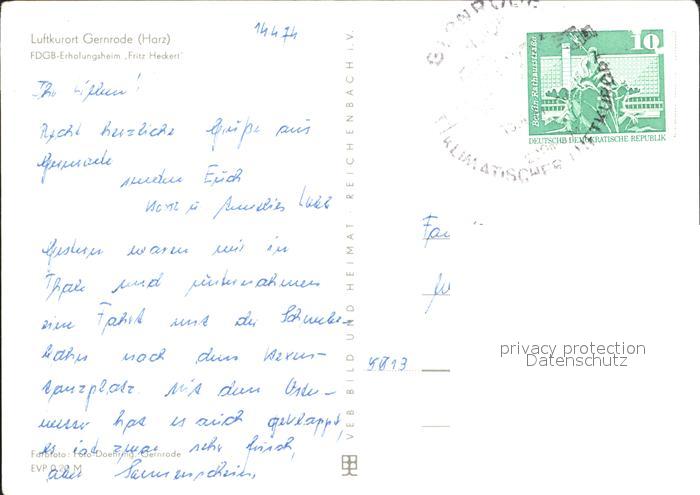 14.4.74
Luftkurort Gernrode (Harz)
FDGB-Erholungsheim „Fritz Heckert"
Ihr Lieben!
Recht herzliche Grüße aus
Gernrode
senden Euch
Horst u. Annelies
Gestern waren wir in
Thale und unternahmen
eine Fahrt mit der Schwebe-
bahn nach dem Hexen-
tanzplatz. Mit dem Oster-
wetter hat es auch geklappt,
es ist zwar sehr frisch,
aber Sonnenschein.
Farbfoto: Foto-Doehring, Gernrode
EVP 0,20 M
VEB BILD UND HEIMAT · REICHENBACH I. V.
10
Berlin, Rathausstraße
DEUTSCHE DEMOKRATISCHE REPUBLIK
GERNRODE
KLIMATISCHER LUFTKURORT
Fam
privacy protection
Datenschutz